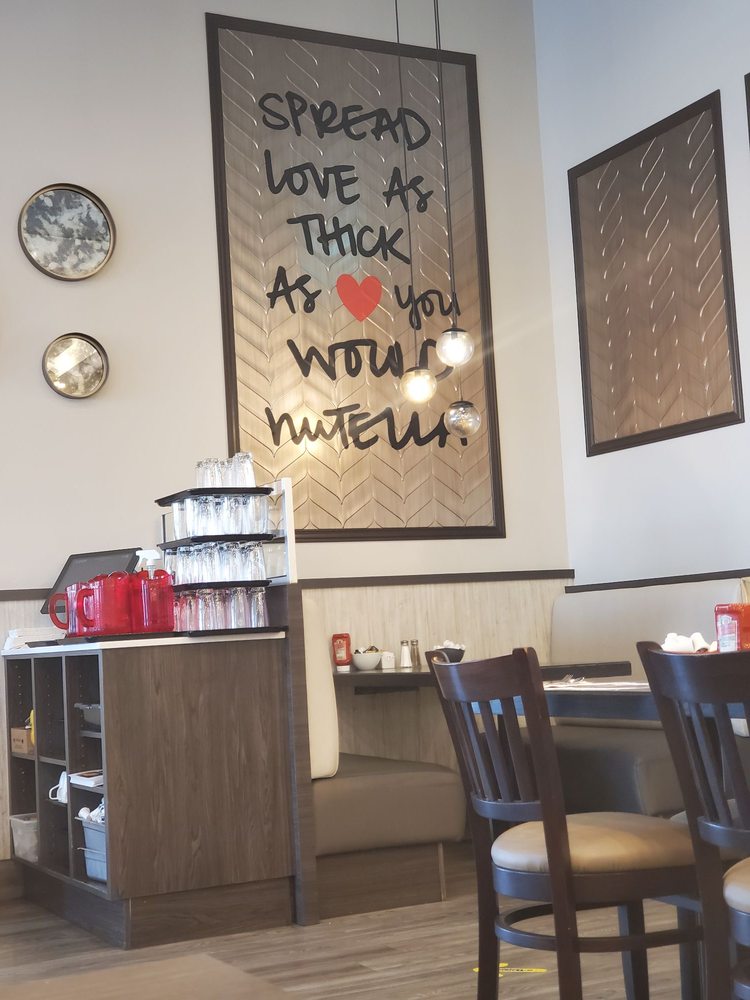 SPREAD
LOVE AS
THICK
AS ❤ YOU
WOULD
NUTELLA